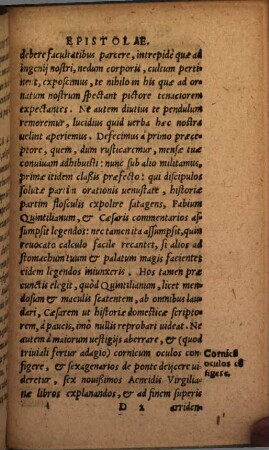 EPISTOLAE.
debere facultatibus parcere, intrepidè quæ ad
ingenij nostri, nedum corporis, cultum perti
nent, exposcimus, te nihilo in his quæ ad or-
natum nostrum spectant pictore tenaciorem
expectantes. Ne autem diutius te pendulum
remoremur, lucidius quid uerba hæc nostra
uelint aperiemus. Defecimus à primo præce-
ptore, quem, dum rusticaremur, mensæ tuæ
conuiuam adhibuisti: nunc sub alio militamus,
primæ itidem classis præfecto: qui discipulos
solutæ partim orationis uenustate, historiæ
partim flosculis expolire satagens, Fabium
Quintilianum, & Cæsaris commentarios as-
sumpsit legendos: nec tamen ita assumpsit, quin
reuocato calculo facile recantet, si alios ad
stomachum tuum & palatum magis facientes
eidem legendos iniunxeris. Hos tamen præ
cunctis elegit, quòd Quintilianum, licet men-
dosum & maculis scatentem, ab omnibus lau-
dari, Cæsarem ut historiæ domesticæ scripto-
rem, à paucis, imò nullis reprobari uideat. Ne
autem à maiorum uestigijs aberrare, & (quod
triuiali fertur adagio) cornicum oculos con-
figere, & sexagenarios de ponte deijcere ui-
deretur, sex nouissimos Aeneidis Virgilia-
næ libros explanandos, & ad finem superis
Cornicũ
oculos cõ
figere.
D 2 arriden-